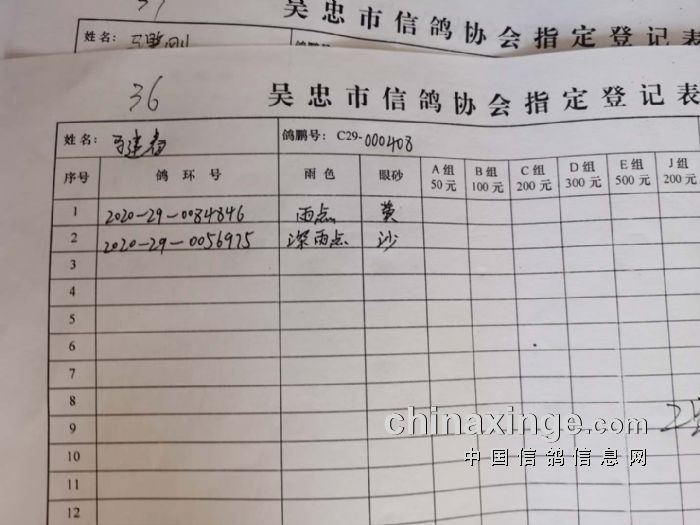 37
吴忠市信鸽协会指定登记表
姓名: 王 刚
36
吴忠市信鸽协会指定登记表
姓名: 建 鸽鹏号: C29-000408
序号 鸽环号 雨色 眼砂 A组 50元 B组 100元 C组 200元 D组 300元 E组 500元 J组 200元
1 2020-29-0084846 雨点 黄
2 2020-29-0056975 深雨点 沙
3
4
5
6
7
8
9
10
11
12
chinaxinge.com
中国信鸽信息网